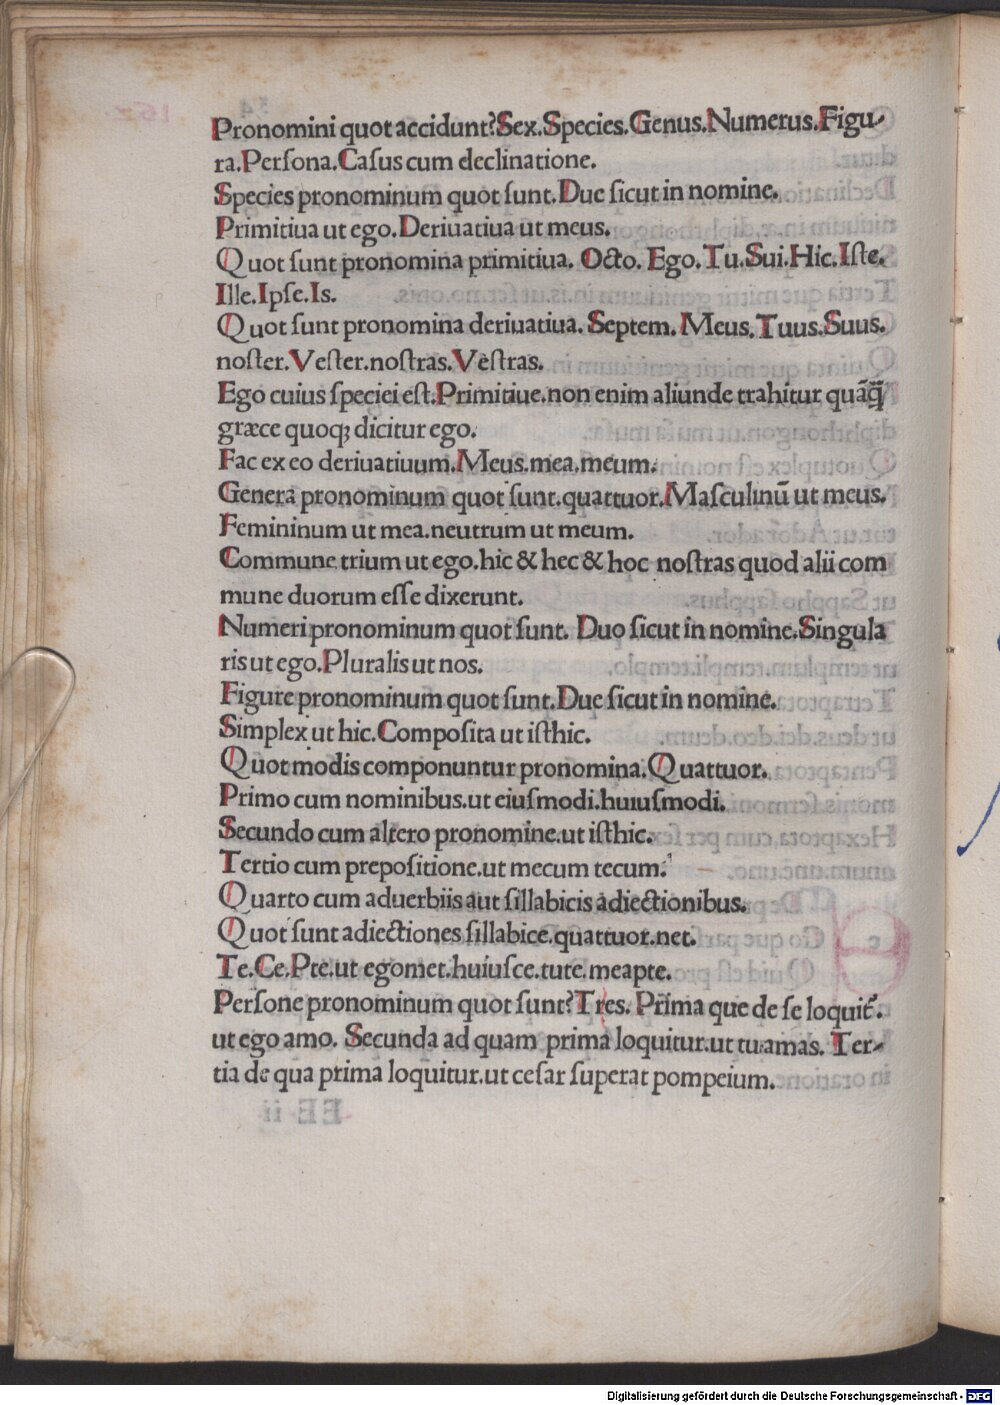 Pronomini quot accidunt?Sex.Species.Genus.Numerus.Figu-
ra.Perſona.Caſus cum declinatione.
Species pronominum quot ſunt.Due ſicut in nomine.
Primitiua ut ego.Deriuatiua ut meus.
Quot ſunt pronomina primitiua. Octo. Ego.Tu.Sui.Hic.Iſte.
Ille.Ipſe.Is.
Quot ſunt pronomina deriuatiua. Septem. Meus.Tuus.Suus.
noſter.Veſter.noſtras.Veſtras.
Ego cuius ſpeciei eſt.Primitiue.non enim aliunde trahitur quãq̃
græce quoq; dicitur ego.
Fac ex eo deriuatiuum.Meus.mea.meum.
Genera pronominum quot ſunt.quattuor.Maſculinũ ut meus.
Femininum ut mea.neutrum ut meum.
Commune trium ut ego.hic & hec & hoc noſtras quod alii com
mune duorum eſſe dixerunt.
Numeri pronominum quot ſunt. Duo ſicut in nomine.Singula
ris ut ego.Pluralis ut nos.
Figure pronominum quot ſunt.Due ſicut in nomine.
Simplex ut hic.Compoſita ut iſthic.
Quot modis componuntur pronomina.Quattuor.
Primo cum nominibus.ut eiuſmodi.huiuſmodi.
Secundo cum altero pronomine.ut iſthic.
Tertio cum prepoſitione.ut mecum tecum.
Quarto cum aduerbiis aut ſillabicis adiectionibus.
Quot ſunt adiectiones ſillabice.quattuor.net.
Te.Ce.Pte.ut egomet.huiuſce.tute.meapte.
Perſone pronominum quot ſunt?Tres. Prima que de ſe loquit̃.
ut ego amo. Secunda ad quam prima loquitur.ut tu.amas. Ter-
tia de qua prima loquitur.ut ceſar ſuperat pompeium.
Digitalisierung gefördert durch die Deutsche Forschungsgemeinschaft - DFG